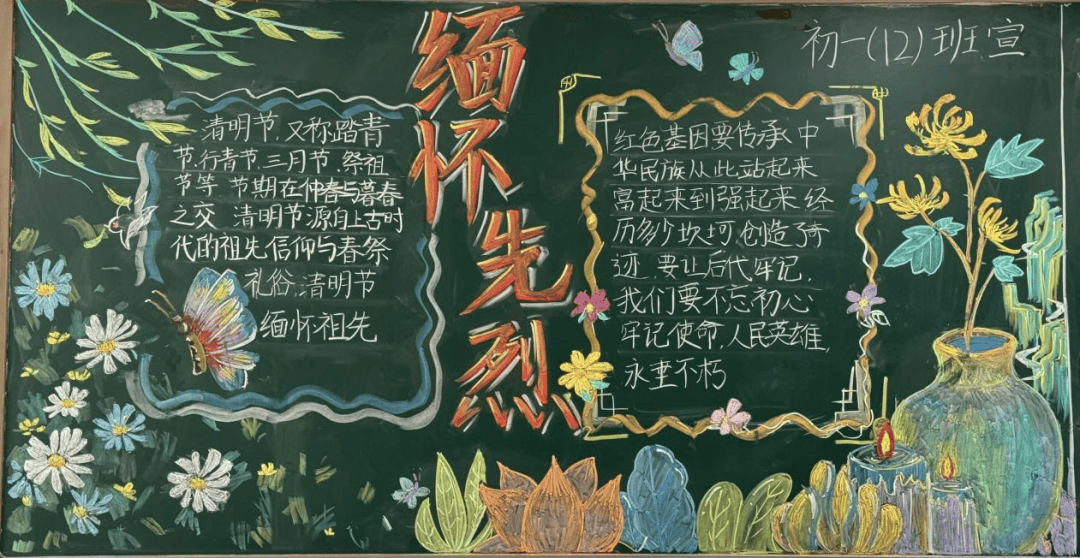 缅怀先烈
初一(12)班宣
清明节,又称踏青
节、行青节、三月节、祭祖
节等 节期在仲春与暮春
之交 清明节源自上古时
代的祖先信仰与春祭
礼俗,清明节
缅怀祖先
红色基因要传承、中
华民族从此站起来
富起来到强起来 经
历多少坎坷,创造了奇
迹,要让后代牢记,
我们要不忘初心
牢记使命,人民英雄,
永垂不朽